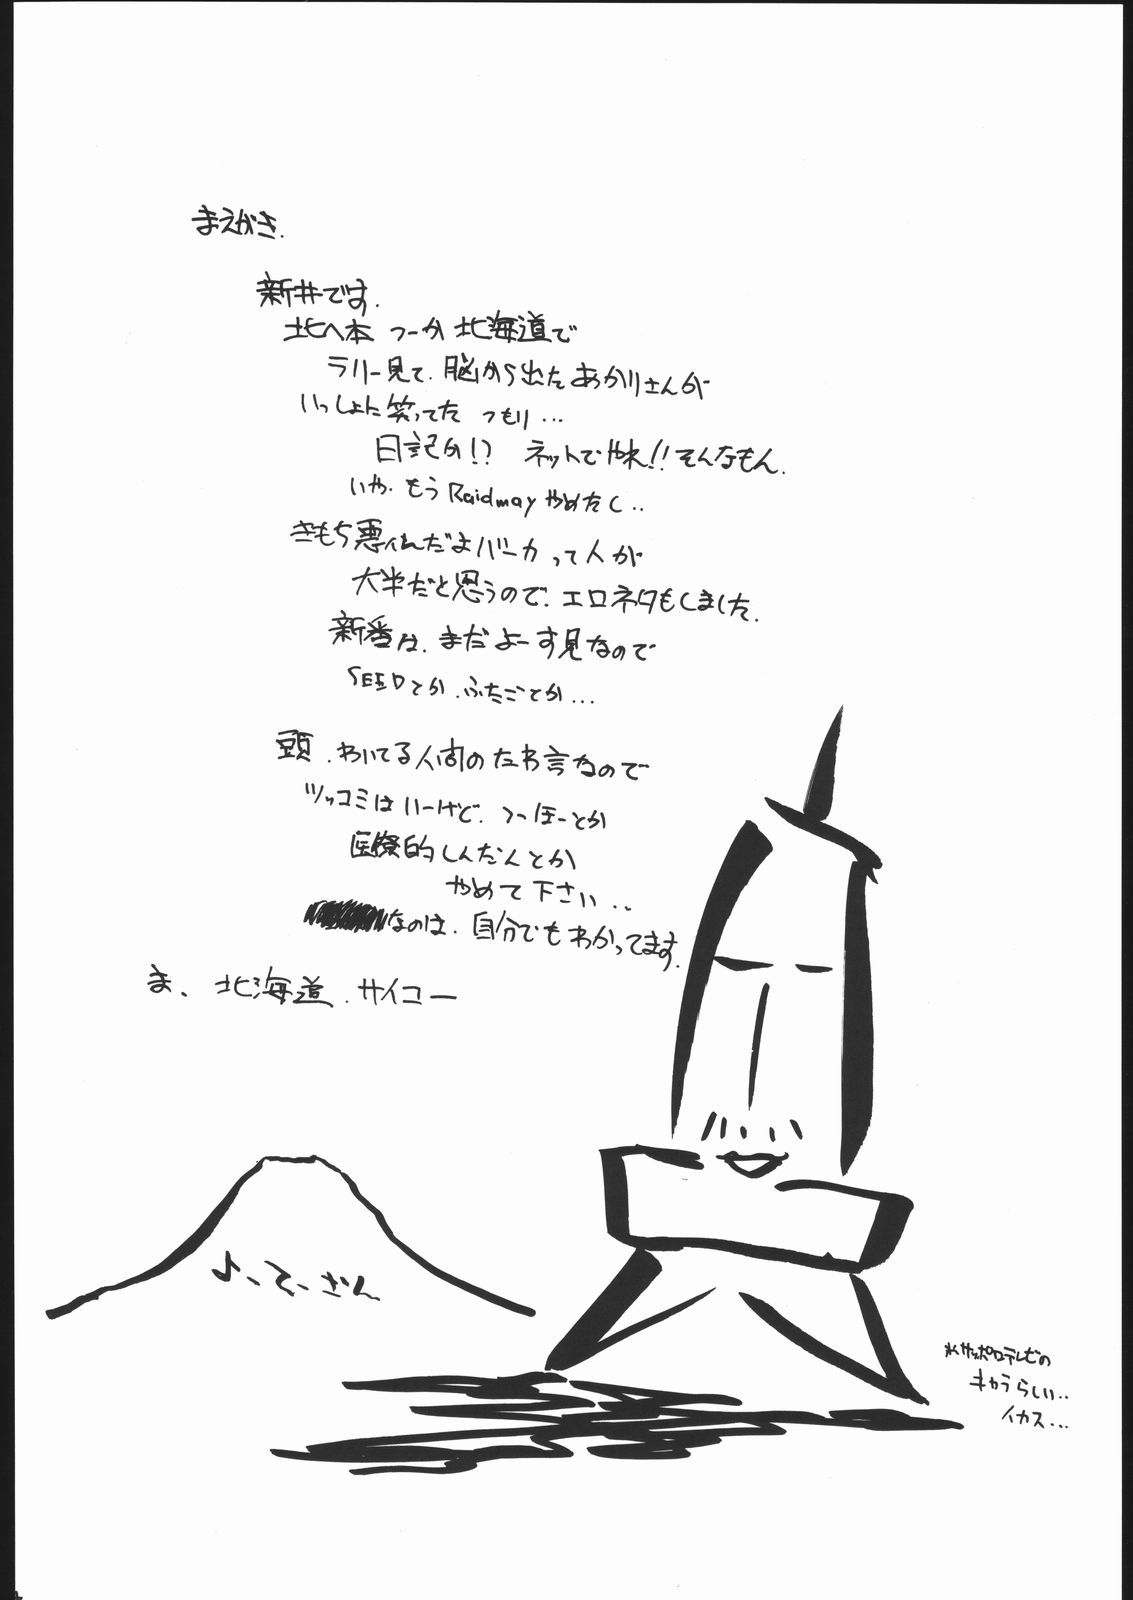 まえがき.
新井です.
北へ本 つーか 北海道で
ラリー見て、脳から出たあかりさんが
いっしょに笑ってた つもり…
日記か!? ネットでやれ!! そんなもん.
いや. もう Raidmay やめたし..
きもち悪ぃんだよバーカ って人が
大半だと思うので、エロネタもしました.
新番は、まだよーす見なので
SEEDとか、ふたごとか…
頭、わいてる人間のたわ言なので
ツッコミはいーけど、つっほーとか
医療的しんだんとか
やめて下さい..
なのは、自分でもわかってます.
ま、北海道、サイコー
よーてーさん
※サッポロテレビの
キャラらしい..
イカス…